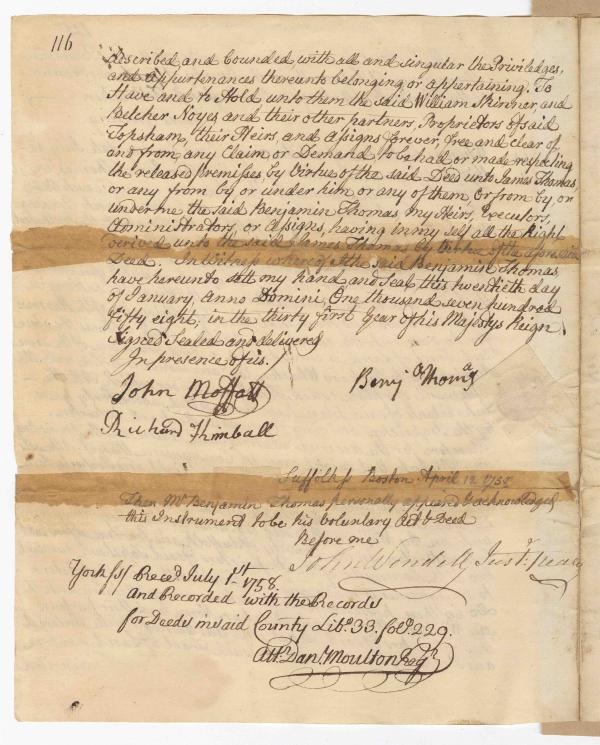 116
described and bounded, with all and singular the Priviledges,
and appurtenances thereunto belonging or appertaining. To
Have and to Hold unto them the said William Skinner, and
Belcher Noyes and their other partners, Proprietors of said
Topsham, their Heirs, and assigns forever, Free and clear of
and from, any Claim or Demand to be had or made respecting
the released premisses by Virtue of the said Deed unto James Thomas,
or any from by or under him or any of them, or from by or
under me the said Benjamin Thomas my Heirs, Executors,
Administrators, or assigns, having in my self all the Right
derived unto the said James Thomas by Virtue of the aforesaid
Deed. In Witness whereof I the said Benjamin Thomas
have hereunto sett my hand and Seal this twentieth day
of January, Anno Domini, One thousand seven hundred
Fifty eight, in the thirty first Year of his Majestys Reign
Signed Sealed and delivered
In presence of us.
John Moffatt
Benjᵃ Thomas
Richard Kimball
Suffolk ss Boston April 12 1758
Then Mr Benjamin Thomas personally appeared & acknowledged
this Instrument to be his Voluntary Act & Deed
Before me
John Wendell Justᵉ peace
York ss/ Recd July 1st 1758.
and Recorded with the Records
for Deeds in said County Libº 33. folº 229.
Attt Danl Moulton Regr